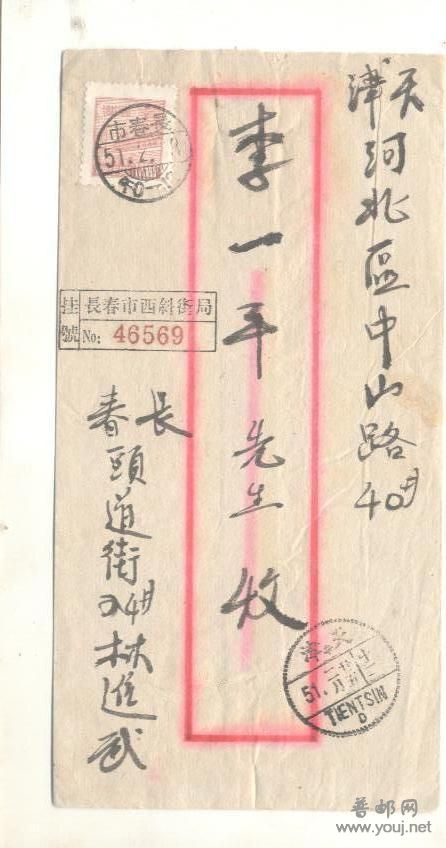 天津
河北區中山路40號
李一平先生收
長春
頭道街24號林進武
挂號
長春市西斜街局
No: 46569
長春市
51.2.
天津
51.
TIENTSIN
D
普邮网
www.youj.net